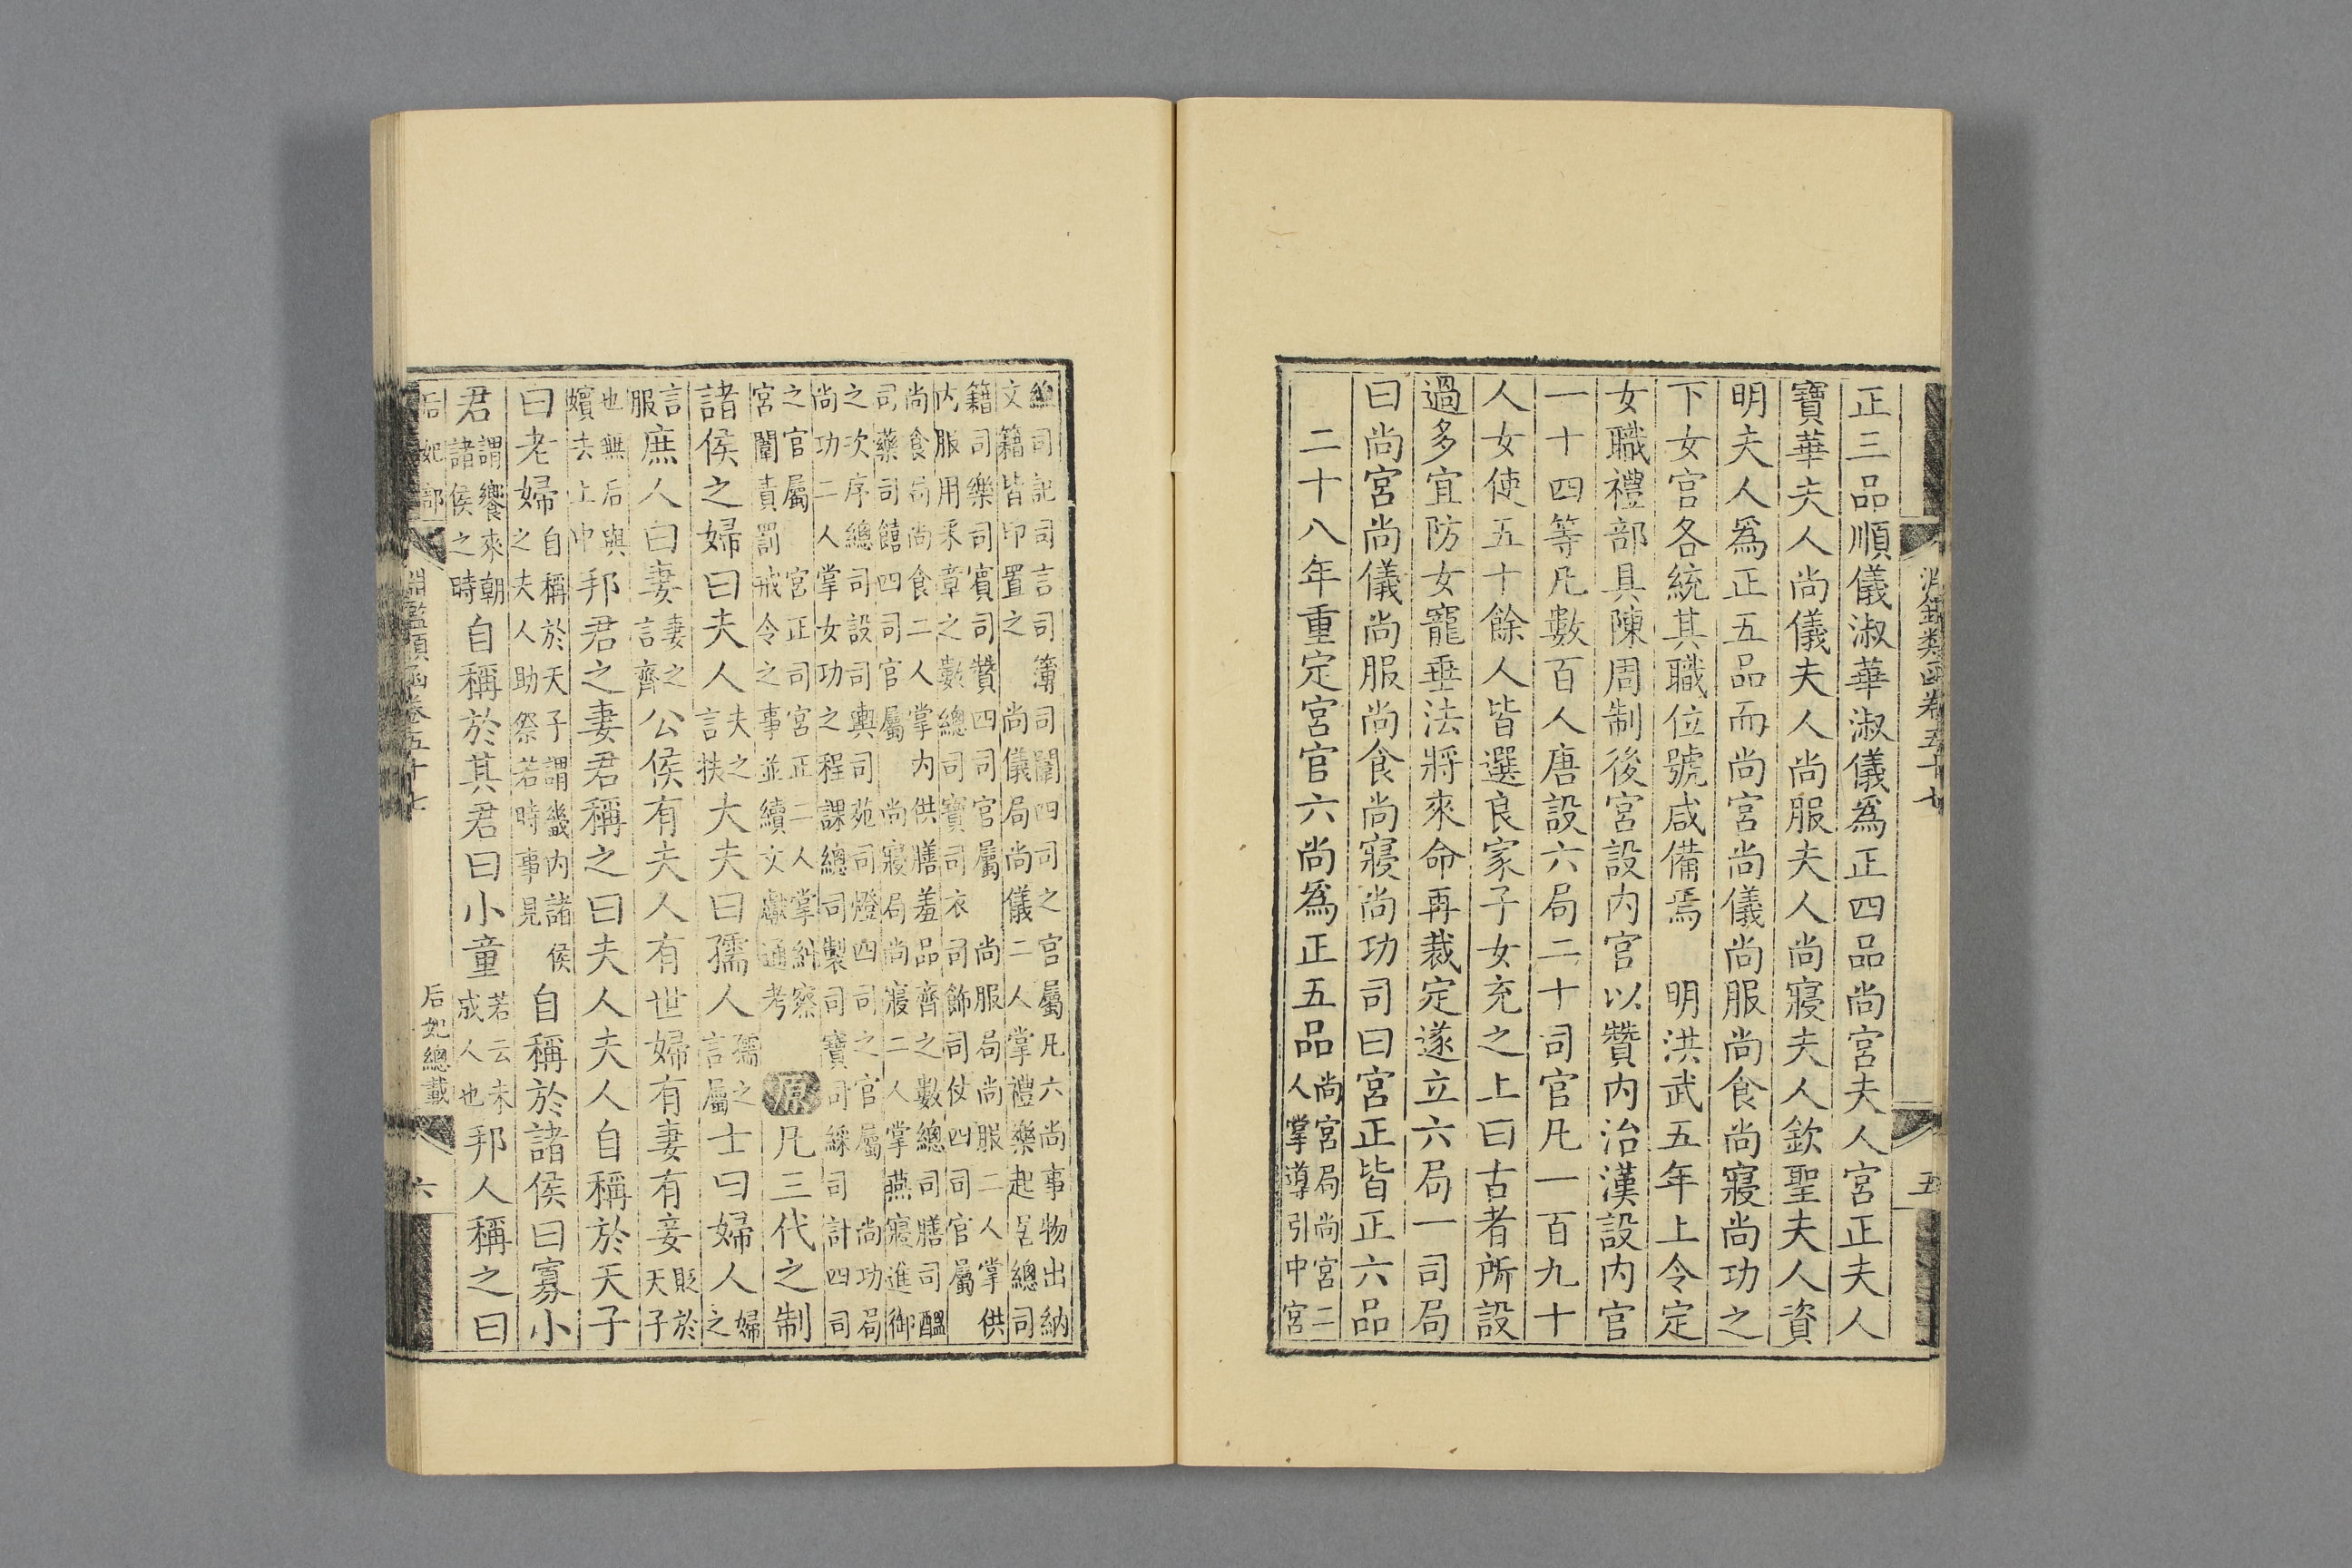 正三品順儀淑華淑儀爲正四品尚宮夫人宮正夫人
寶華夫人尚儀夫人尚服夫人尚寢夫人欽聖夫人資
明夫人爲正五品而尚宮尚儀尚服尚食尚寢尚功之
下女官各統其職位號咸備焉　明洪武五年上令定
女職禮部具陳周制後宮設内官以贊内治漢設内官
一十四等凡數百人唐設六局二十司官凡一百九十
人女使五十餘人皆選良家子女充之上曰古者所設
過多宜防女寵垂法將來命再裁定遂立六局一司局
曰尚宮尚儀尚服尚食尚寢尚功司曰宮正皆正六品
二十八年重定宮官六尚爲正五品
尚宮局尚宮二
人掌導引中宮
五
總司記司言司簿司闈四司之官屬凡六尚事物出納
文籍皆印置之　尚儀局尚儀二人掌禮樂起居總司
籍司樂司賓司贊四司官屬　尚服局尚服二人掌供
内服用采章之數總司寶司衣司飾司仗四司官屬
尚食局尚食二人掌内供膳羞品齊之數總司膳司醞
司藥司饎四司官屬　尚寢局尚寢二人掌燕寢進御
之次序總司設司輿司苑司燈四司之官屬　尚功局
尚功二人掌女功之程課總司製司寶司綵司計四司
之官屬　宮正司宮正二人掌糾察
宮闈責罰戒令之事並續文獻通考
原 凡三代之制
諸侯之婦曰夫人
夫之
言扶
大夫曰孺人
孺之
言屬
士曰婦人
婦
之
言
服
庶人曰妻
妻之
言齊
公侯有夫人有世婦有妻有妾
貶於
天子
也無后與
嬪去上中
邦君之妻君稱之曰夫人夫人自稱於天子
曰老婦
自稱於天子謂畿内諸侯
之夫人助祭若時事見
自稱於諸侯曰寡小
君
謂饗來朝
諸侯之時
自稱於其君曰小童
若云未
成人也
邦人稱之曰
后妃部
淵鑑類函卷五十七
后妃總載
六